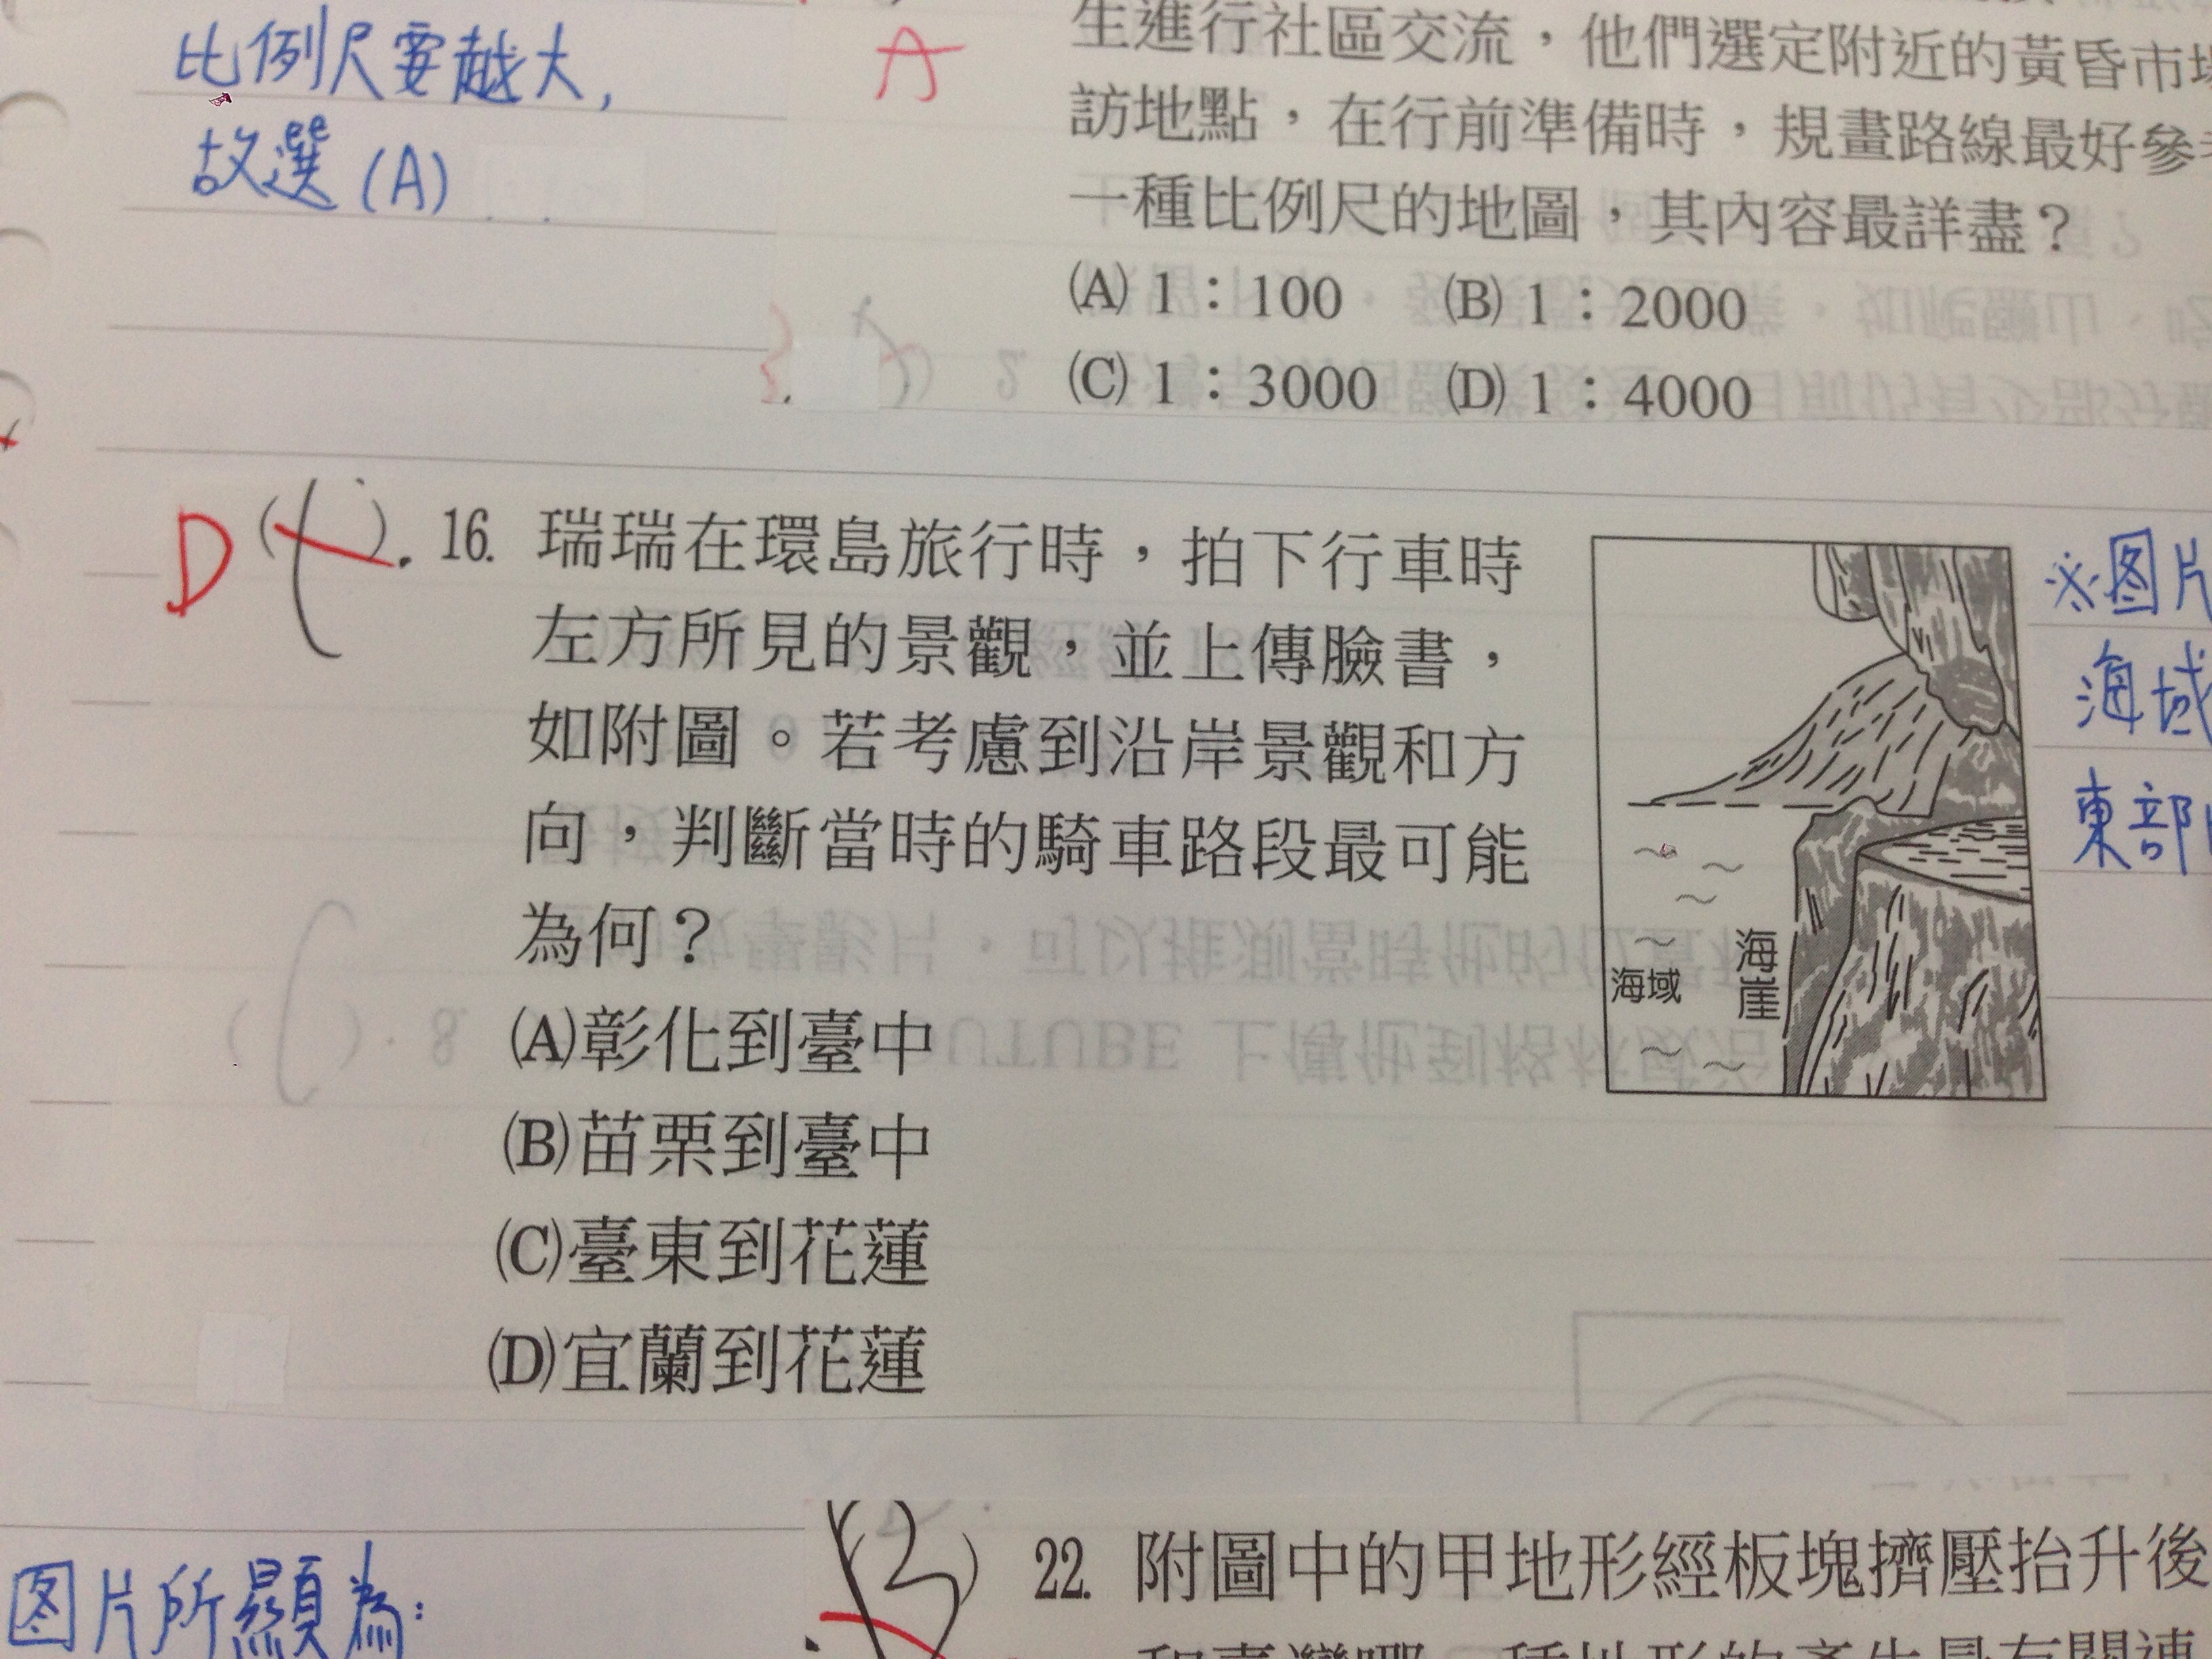 比例尺要越大,
故選(A)
A
生進行社區交流，他們選定附近的黃昏市場
訪地點，在行前準備時，規畫路線最好參考
一種比例尺的地圖，其內容最詳盡？
(A) 1：100 (B) 1：2000
(C) 1：3000 (D) 1：4000
D
16. 瑞瑞在環島旅行時，拍下行車時
左方所見的景觀，並上傳臉書，
如附圖。若考慮到沿岸景觀和方
向，判斷當時的騎車路段最可能
為何？
(A)彰化到臺中
(B)苗栗到臺中
(C)臺東到花蓮
(D)宜蘭到花蓮
海域
海崖
※图片
海域
東部
图片所顯為:
22. 附圖中的甲地形經板塊擠壓抬升後